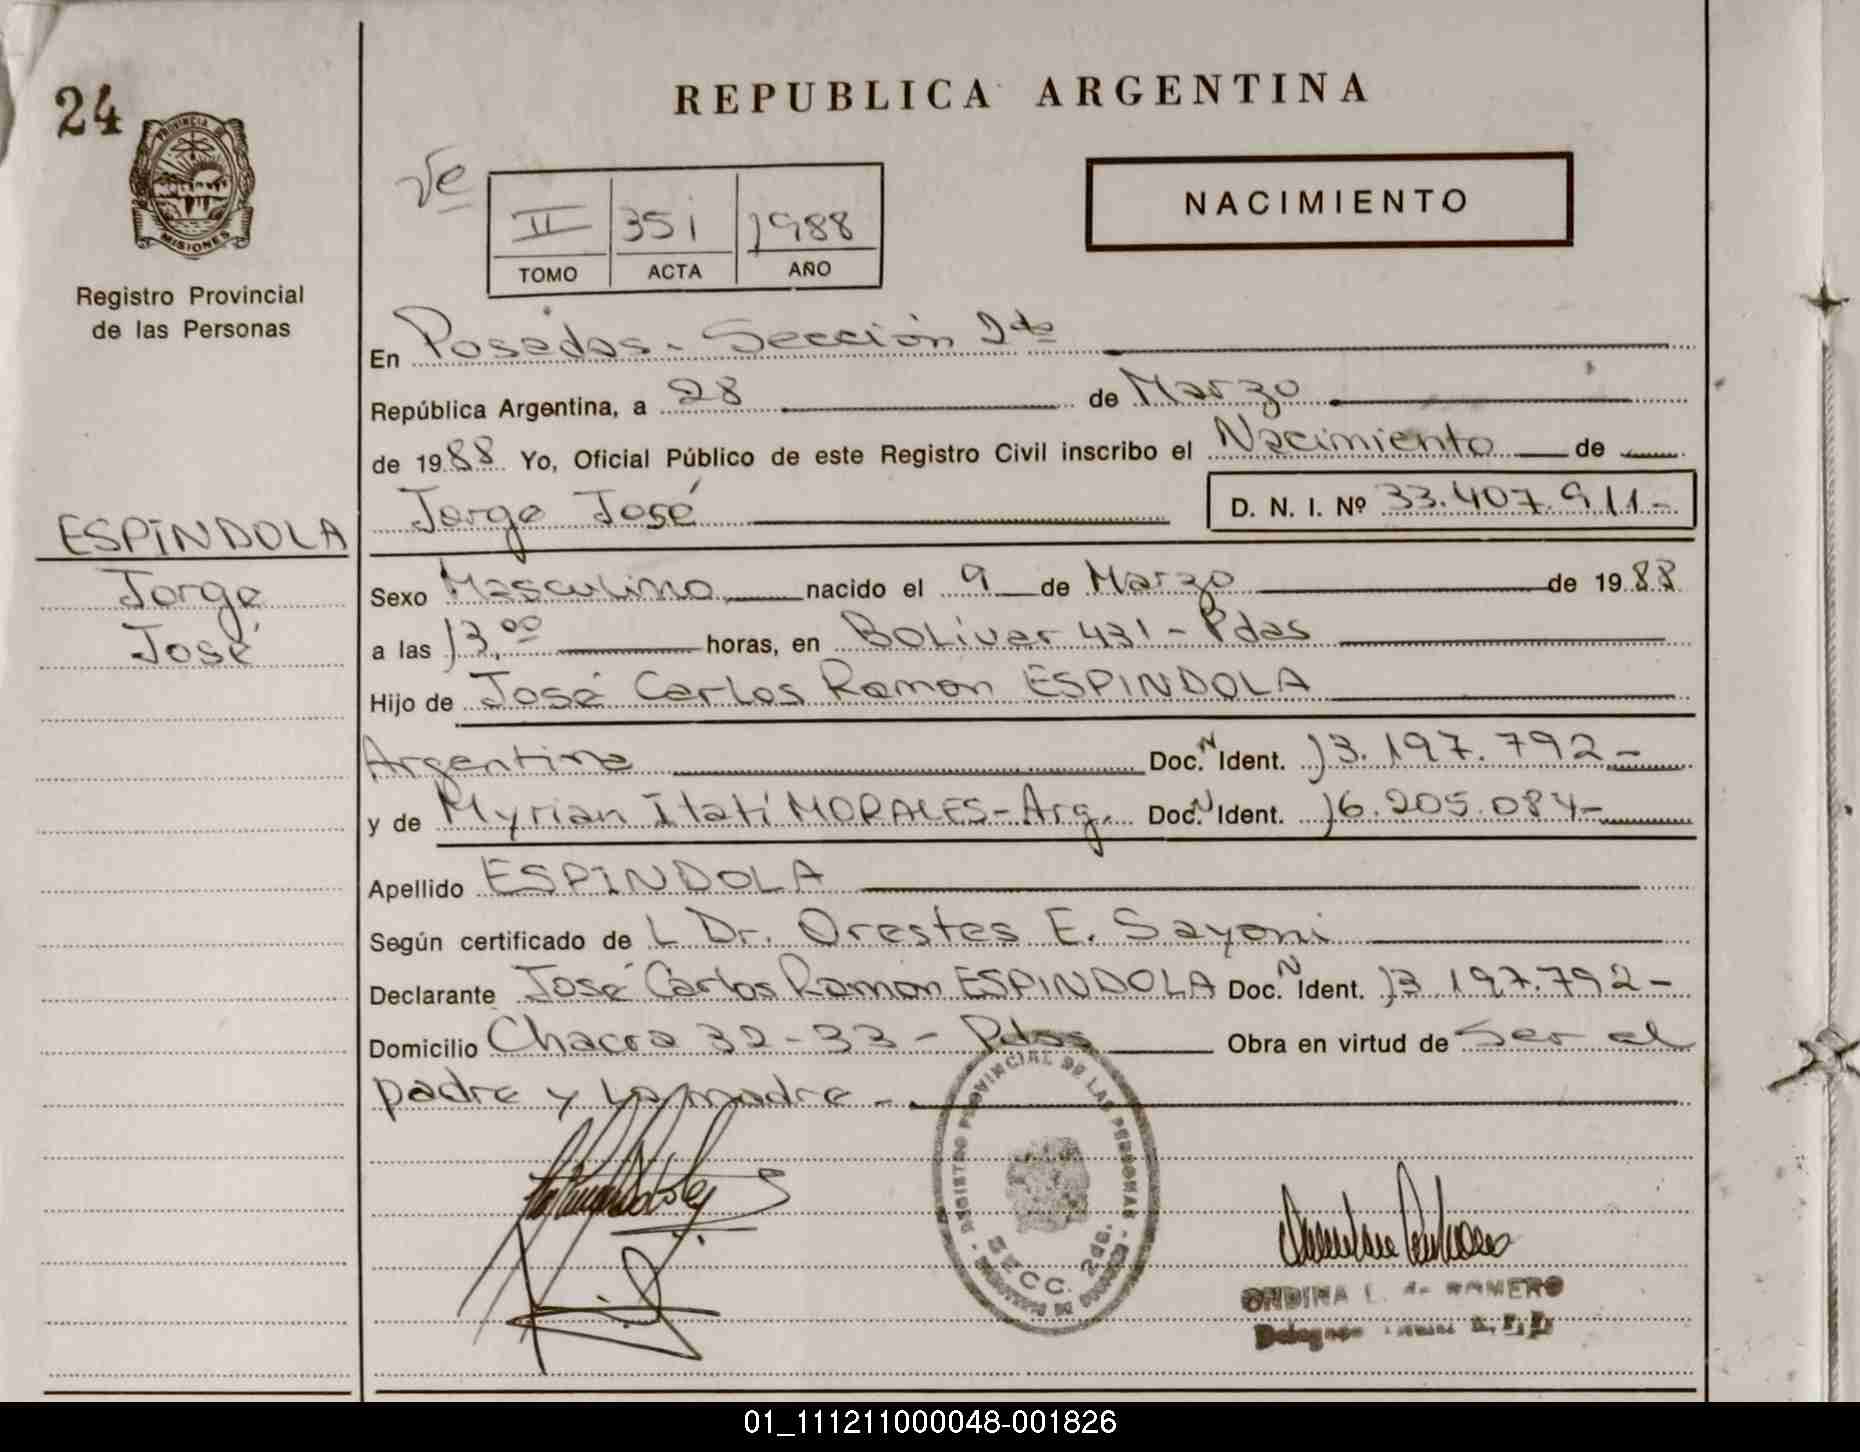 24
PROVINCIA DE
MISIONES
Registro Provincial
de las Personas
ESPINDOLA
Jorge
José
REPUBLICA ARGENTINA
NACIMIENTO
II 351 1988
TOMO ACTA AÑO
En Posadas - Sección 2da
República Argentina, a 28 de Marzo
de 1988 Yo, Oficial Público de este Registro Civil inscribo el Nacimiento de
Jorge José D. N. I. Nº 33.407.911-
Sexo Masculino nacido el 9 de Marzo de 1988
a las 13,00 horas, en Bolívar 431 - Pdas
Hijo de José Carlos Ramon ESPINDOLA
Argentina Doc. N Ident. 13.197.792-
y de Myrian Itatí MORALES-Arg. Doc. N Ident. 16.205.084-
Apellido ESPINDOLA
Según certificado de L Dr. Orestes E. Sayoni
Declarante José Carlos Ramon ESPINDOLA Doc. N Ident. 13.197.792-
Domicilio Chacra 32-33 - Pdas Obra en virtud de Ser el
padre y la madre -
REGISTRO PROVINCIAL DE LAS PERSONAS
SECC. 2da.
ONDINA L. de ROMERO
01_111211000048-001826